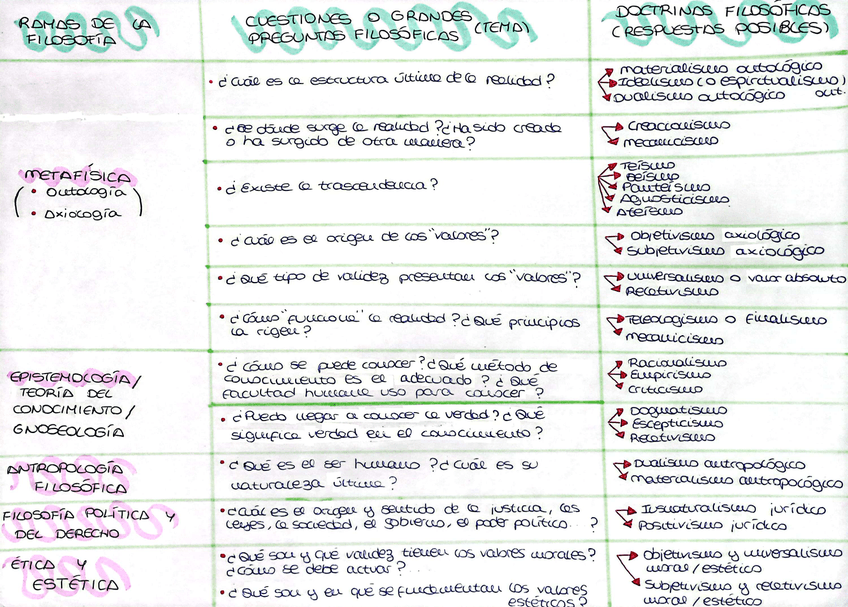 RAMAS DE LA
FILOSOFÍA
CUESTIONES O GRANDES
PREGUNTAS FILOSÓFICAS (TEMA)
DOCTRINAS FILOSÓFICAS
(RESPUESTAS POSIBLES)
METAFÍSICA
(• Ontología
• Axiología)
• ¿Cuál es la estructura última de la realidad?
materialismo ontológico
Idealismo (o espiritualismo)
ont.
Dualismo ontológico
• ¿De dónde surge la realidad? ¿Ha sido creada
o ha surgido de otra manera?
Creacionismo
mecanicismo
• ¿Existe la trascendencia?
Teísmo
Deísmo
Panteísmo
Agnosticismo
Ateísmo
• ¿Cuál es el origen de los "valores"?
Objetivismo axiológico
Subjetivismo axiológico
• ¿Qué tipo de validez presentan los "valores"?
Universalismo o valor absoluto
Relativismo
• ¿Cómo "funciona" la realidad? ¿Qué principios
la rigen?
Teleologismo o Finalismo
mecanicismo
EPISTEMOLOGÍA/
TEORÍA DEL
CONOCIMIENTO/
GNOSEOLOGÍA
• ¿Cómo se puede conocer? ¿Qué método de
conocimiento es el adecuado? ¿Qué
facultad humana uso para conocer?
Racionalismo
Empirismo
criticismo
• ¿Puedo llegar a conocer la verdad? ¿Qué
significa verdad en el conocimiento?
Dogmatismo
Escepticismo
Relativismo
ANTROPOLOGÍA
FILOSÓFICA
• ¿Qué es el ser humano? ¿Cuál es su
naturaleza última?
Dualismo antropológico
materialismo antropológico
FILOSOFÍA POLÍTICA Y
DEL DERECHO
• ¿Cuál es el origen y sentido de la justicia, las
leyes, la sociedad, el gobierno, el poder político...?
Iusnaturalismo jurídico
Positivismo jurídico
ÉTICA Y
ESTÉTICA
• ¿Qué son y qué validez tienen los valores morales?
¿Cómo se debe actuar?
• ¿Qué son y en qué se fundamentan los valores
estéticos?
objetivismo y universalismo
moral/estético
Subjetivismo y relativismo
moral/estético